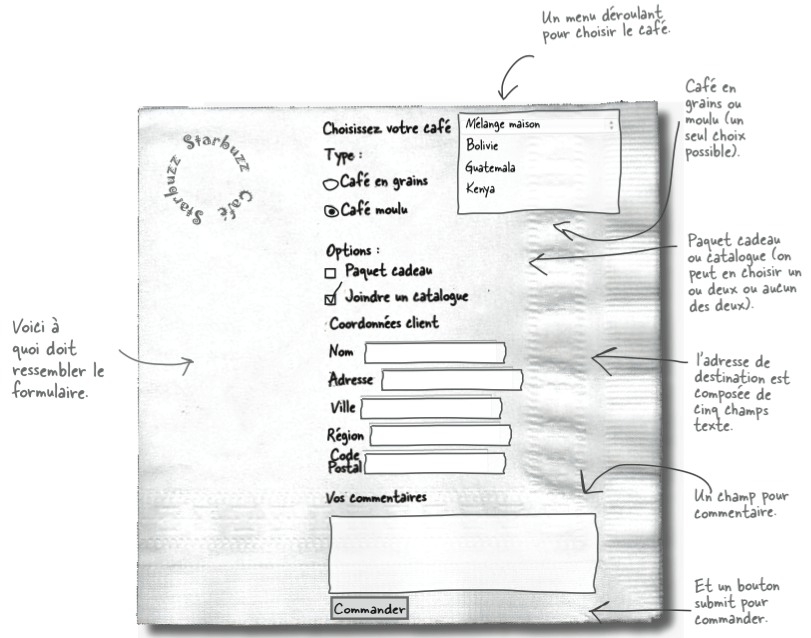 Un menu déroulant
pour choisir le café.
Café en
grains ou
moulu (un
seul choix
possible).
Starbuzz Café
Starbuzz
Choisissez votre café
Mélange maison
Bolivie
Guatemala
Kenya
Type :
Café en grains
Café moulu
Options :
Paquet cadeau
Joindre un catalogue
Paquet cadeau
ou catalogue (on
peut en choisir un
ou deux ou aucun
des deux).
Coordonnées client
Nom
Adresse
Ville
Région
Code
Postal
Voici à
quoi doit
ressembler le
formulaire.
l'adresse de
destination est
composée de
cinq champs
texte.
Vos commentaires
Un champ pour
commentaire.
Commander
Et un bouton
submit pour
commander.